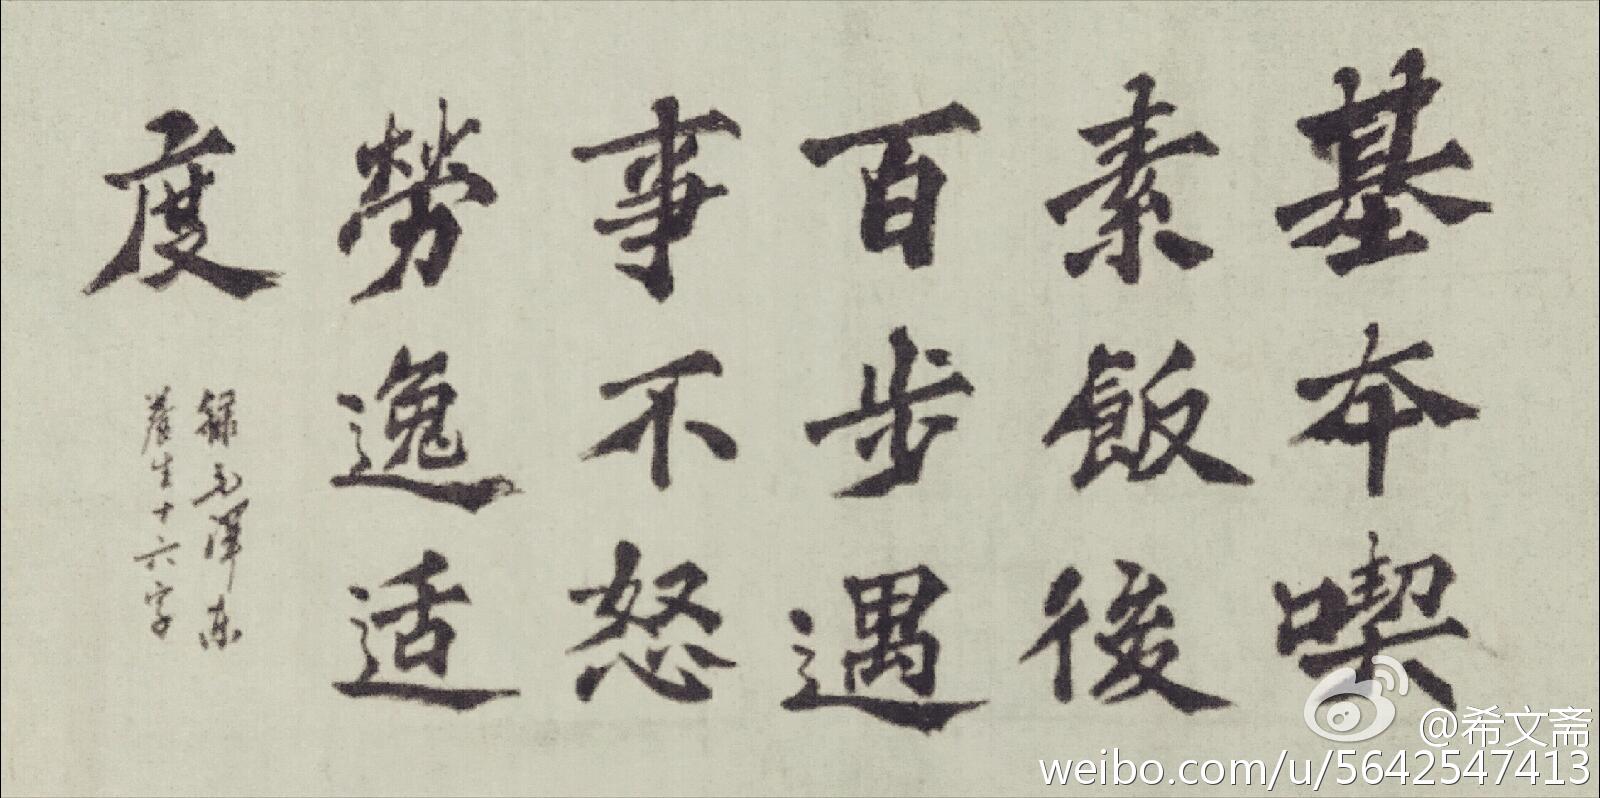 基本喫
素飯後
百步遇
事不怒
勞逸适
度
録毛澤东
養生十六字
@希文斋
weibo.com/u/5642547413